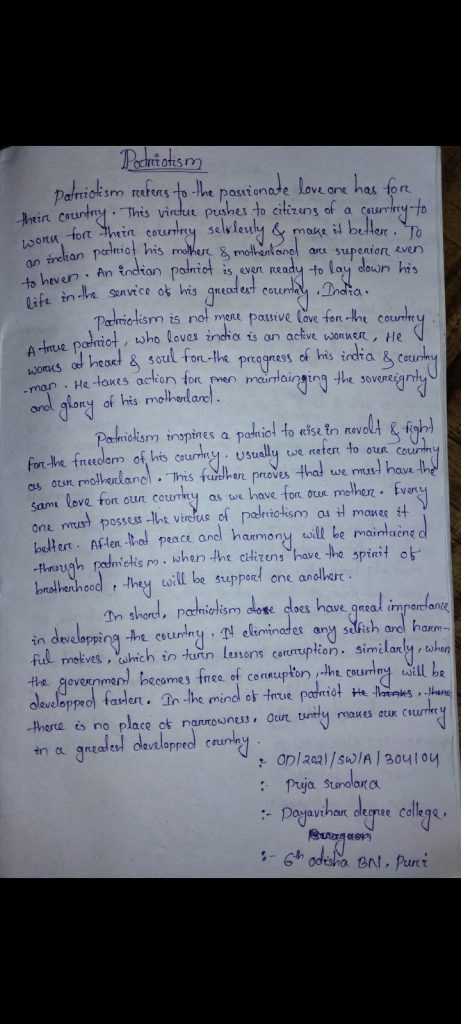 Patriotism
Patriotism refers to the passionate love one has for
their country. This virtue pushes to citizens of a country to
work for their country selklessly & make it better. To
an indian patriot his mother & motherland are superior even
to heven. An indian patriot is even ready to lay down his
life in the service of his greatest country, India.
Patriotism is not mere passive love for the country.
A true patriot, who loves india is an active worker. He
works at heart & soul for the progress of his india & country
-man. He takes action for men maintainging the sovereignty
and glory of his motherland.
Patriotism inspires a patriot to rise in revolt & fight
for the freedom of his country. usually we refer to our country
as our motherland. This further proves that we must have the
same love for our country as we have for our mother. Every
one must possess the virtue of patriotism as it makes it
better. After that peace and harmony will be maintained
through patriotism. when the citizens have the spirit of
brotherhood, they will be support one another.
In short, patriotism dose does have great importance
in developping the country. It eliminates any selfish and harm-
ful motives, which in turn lessons corruption. similarly, when
the government becomes free of corruption, the country will be
developped faster. In the mind of true patriot He thinks, there
there is no place of narrowness. our unity makes our country
in a greatest developped country.
:- OD/2021/SW/A/304104
:- Puja Sundara
:- Dayavihar degree college,
:- 6th odisha BN, Puri